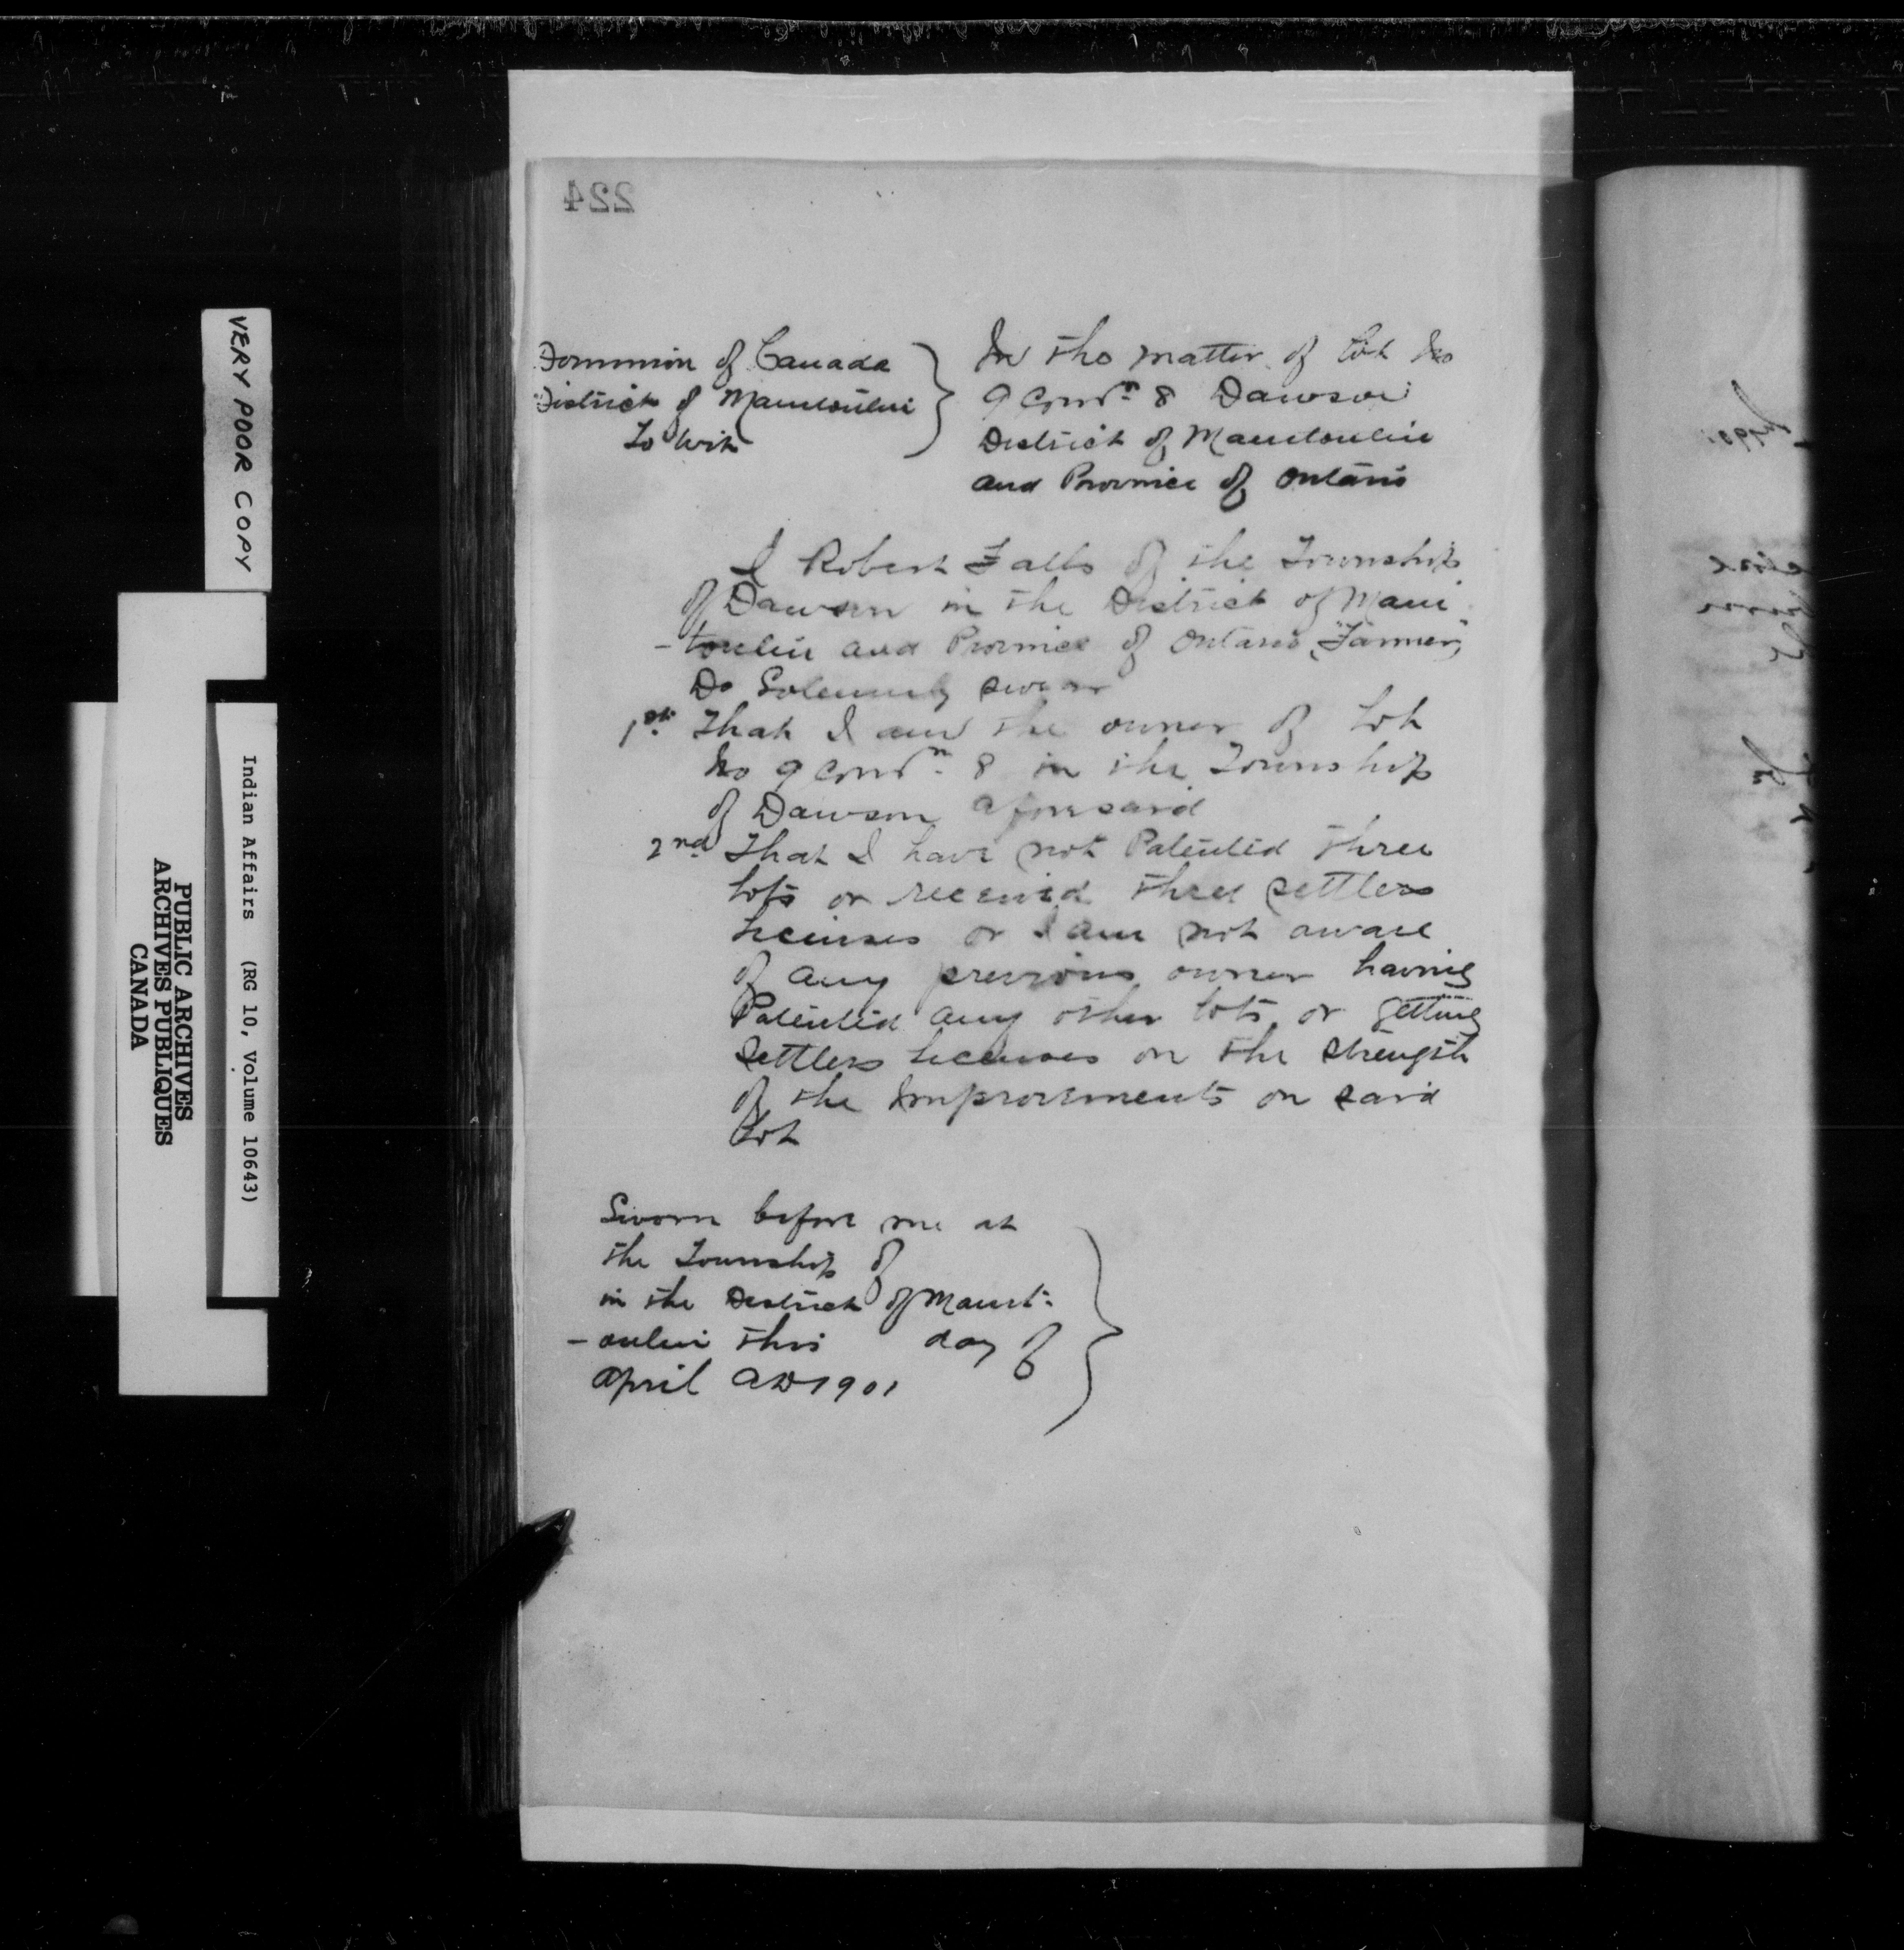 224
Dominion of Canada
District of Manitoulin
To Wit
In the matter of Lot No
9 Con 8 Dawson
District of Manitoulin
and Province of Ontario
I Robert Falls of the Township
of Dawson in the District of Mani
-toulin and Province of Ontario, "Farmer,"
Do Solemnly swear
1st. That I am the owner of Lot
No 9 Con 8 in the Township
of Dawson aforesaid
2nd That I have not Patented three
lots or received three settlers
licenses or I am not aware
of any previous owner having
Patented any other lots or getting
settlers licenses on the strength
of the Improvements on said
Lot
Sworn before me at
the Township of
in the District of Manit-
-oulin this day of
April AD 1901
VERY POOR COPY
Indian Affairs (RG 10, Volume 10643)
PUBLIC ARCHIVES
ARCHIVES PUBLIQUES
CANADA